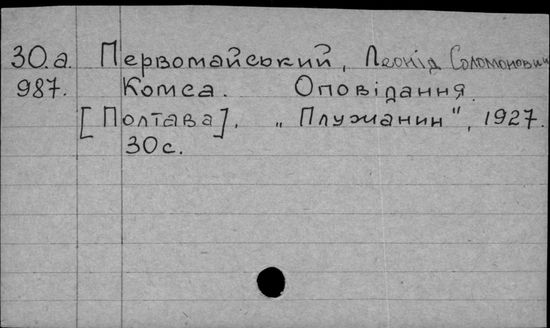 30.а. Первомайський, Леонід Соломонович
987. Комса. Оповідання.
[Полтава], „Плужанин", 1927.
30с.